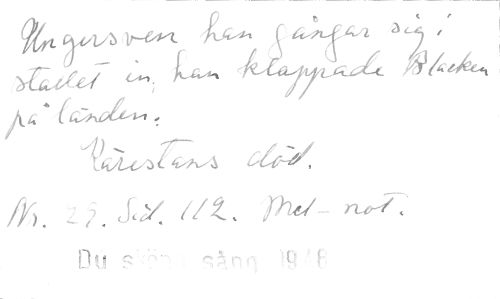 Ungersven han gångar sig i
stallet in, han klappade Blacken
på länden.
Kärestans död.
Nr. 29. Sid. 112. Mel-not.
Du sköna sång 1948